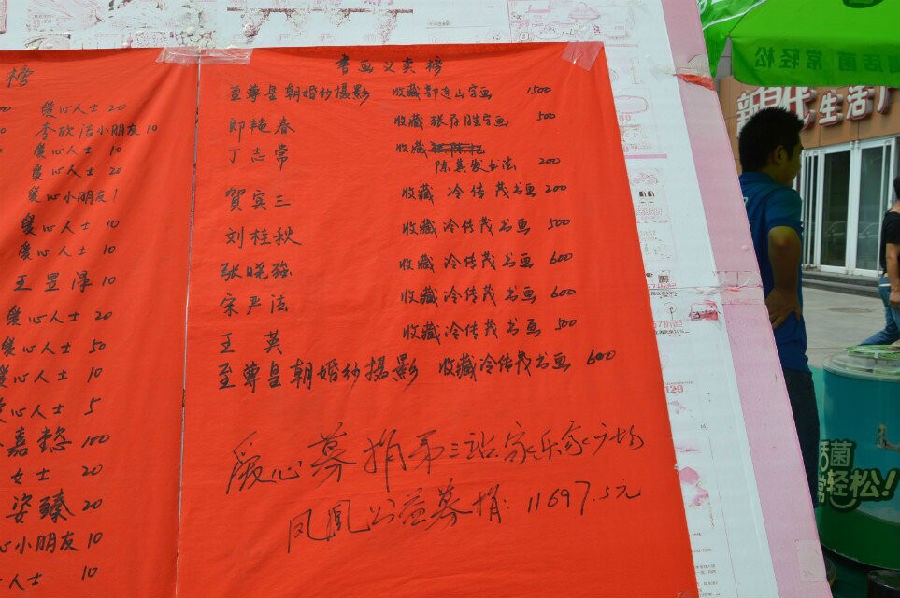 榜
爱心人士 20
李欣洁小朋友 10
爱心人士 10
爱心人士 20
爱心小朋友 1
爱心人士 10
爱心人士 10
王昱淳 10
爱心人士 20
爱心人士 50
爱心人士 10
爱心人士 5
嘉懿 100
女士 20
姿臻 20
心小朋友 10
人士 10
书画义卖榜
至尊皇朝婚纱摄影 收藏郭连山字画 1500
郎艳春 收藏张存胜字画 500
丁志常 收藏
陈英发书法 200
賀宾三 收藏 冷传茂书画 200
刘桂秋 收藏 冷传茂书画 500
张晓强 收藏 冷传茂书画 600
宋严法 收藏 冷传茂书画 600
王英 收藏 冷传茂书画 500
至尊皇朝婚纱摄影 收藏冷传茂书画 600
爱心募捐第三站家乐家广场
凤凰公益募捐: 11697.5元
活菌常轻松
新时代生活广
活菌
常轻松!